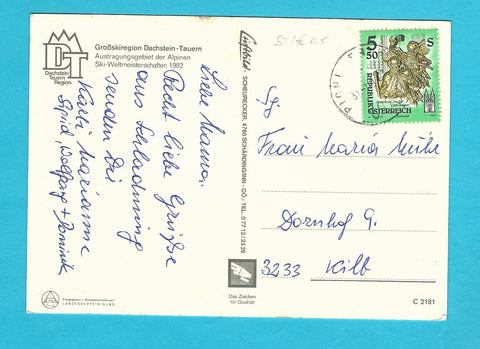 DT
Dachstein
Tauern
Region
Großskiregion Dachstein-Tauern
Austragungsgebiet der Alpinen
Ski-Weltmeisterschaften 1982
Liebe Mama.
Recht liebe Grüße
aus Schladming
senden Dir
Karli Marianne
Sigrid, Wolfgang + Dominik
Freigegeben v. Bundesministerium f.
LANDESVERTEIDIGUNG
Luftbild SCHEURECKER, 4780 SCHÄRDING/INN - OÖ - TEL. 0 77 12 / 23 29
Das Zeichen
für Qualität
5 50
S
REPUBLIK
ÖSTERREICH
PICHL
Frau Maria
Dornhof 9.
3233 Kilb
C 2181